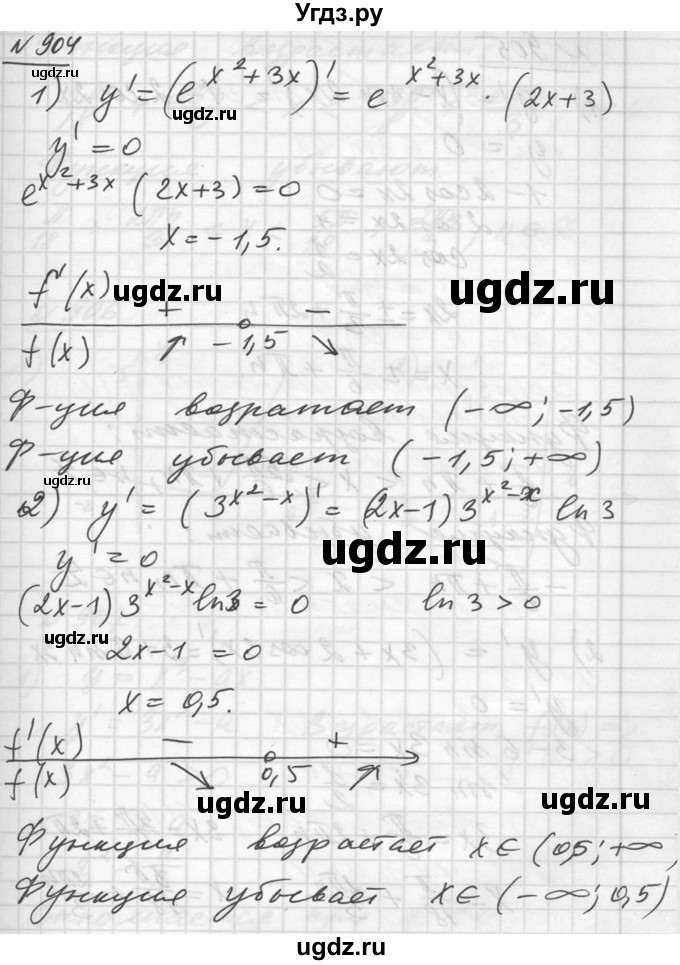 Угдз.ру
№ 904
1) y' = (e^{x²+3x})' = e^{x²+3x} · (2x+3)
y' = 0
e^{x²+3x} (2x+3) = 0
x = -1,5.
f'(x) + −
f(x) ↗ -1,5 ↘
Ф-ция возратает (-∞; -1,5)
Ф-ция убывает (-1,5; +∞)
2) y' = (3^{x²-x})' = (2x-1) 3^{x²-x} ln 3
y' = 0
(2x-1) 3^{x²-x} ln 3 = 0 ln 3 > 0
2x-1 = 0
x = 0,5.
f'(x) − +
f(x) ↘ 0,5 ↗
Функция возрастает x ∈ (0,5; +∞
Функция убывает x ∈ (-∞; 0,5)
ugdz.ru
ugdz.ru
ugdz.ru
ugdz.ru
ugdz.ru
ugdz.ru
ugdz.ru
ugdz.ru
ugdz.ru
ugdz.ru
ugdz.ru